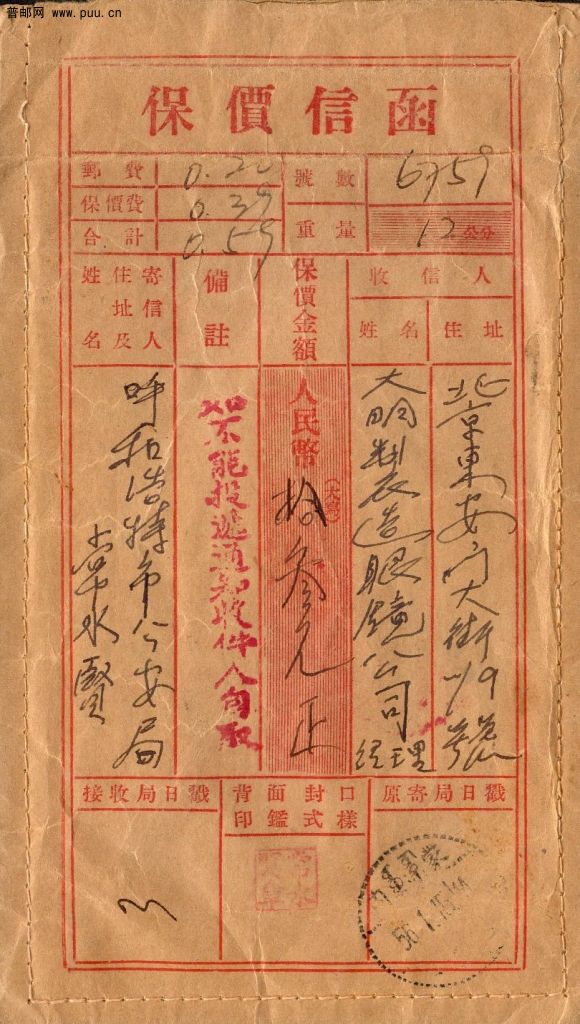 普邮网 www.puu.cn
保價信函
郵費 0.20
保價費 0.39
合計 0.59
號數 6759
重量 12 公分
收信人
住址
姓名
保價金額
備註
寄信人
住址及
姓名
北京東安门大街79號
大明製造眼鏡公司
经理
人民幣(大寫)拾叁元正
如不能投遞通知收件人句取
呼和浩特市公安局
常水賢
原寄局日戳
背面封口
印鑑式樣
接收局日戳
56.1.